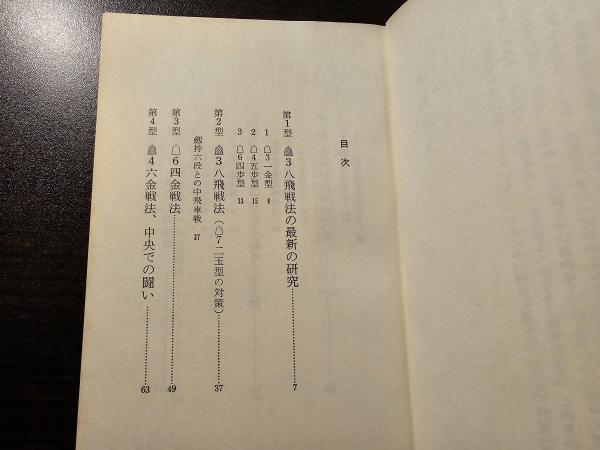 目次
第1型 ☗3八飛戦法の最新の研究……7
1 ☖3一金型 8
2 ☖4五歩型 15
3 ☖6四歩型 33
第2型 ☗3八飛戦法(☖7二玉型の対策)……37
剱持六段との中飛車戦 37
第3型 ☖6四金戦法……49
第4型 ☗4六金戦法、中央での闘い……63